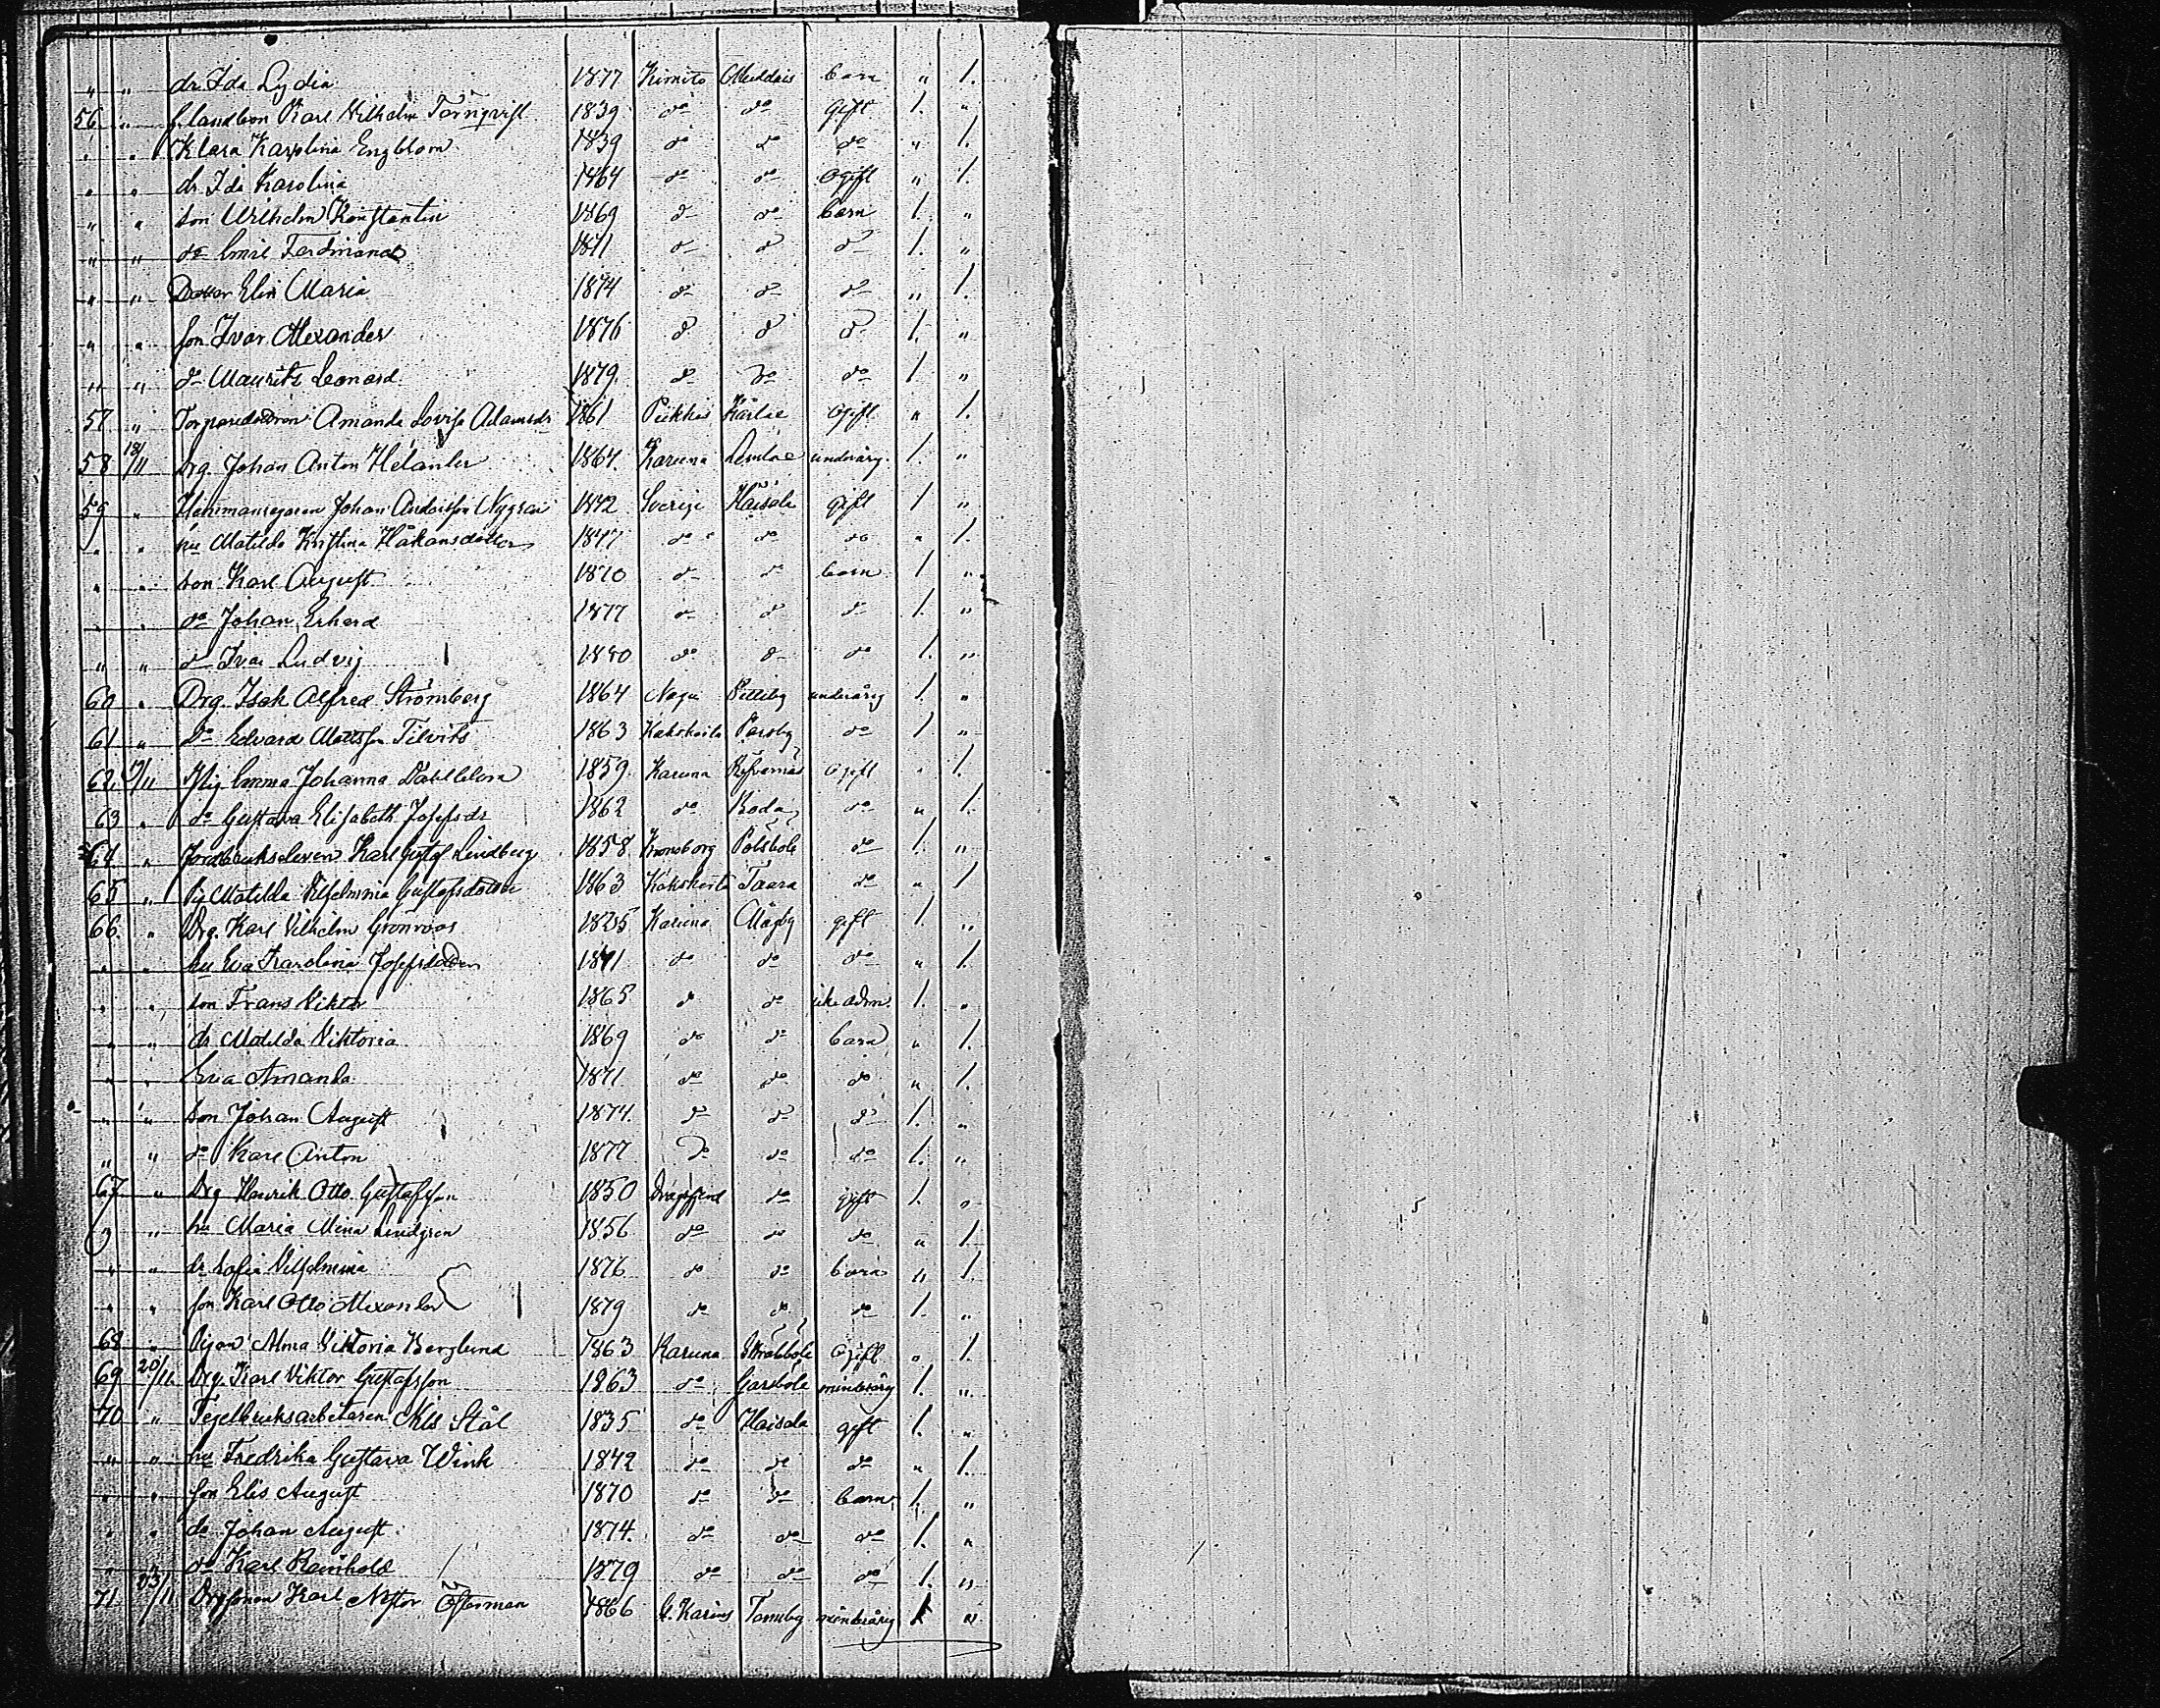 " " dr Ida Lydia 1877 Kimito barn " 1.
56 " f. landbon Karl Vilhelm Törnqvist 1839 do do gift 1. "
" " Klara Karolina Engblom 1839 do do do " 1.
" " dr Ida Karolina 1864 do do Ogift " 1.
" " son Wilhelm Konstantin 1869 do do barn 1. "
" " do Emil Ferdinand 1871 do do do 1. "
" " Dotter Elin Maria 1874 do do do " 1.
" " son Ivar Alexander 1876 do do do 1. "
" " do Maurits Leonard 1879. do do do 1. "
57 " Torparedottren Amanda Lovisa Adamsdr 1861 Piikkis Ogift " 1.
58 18/11 Drg. Johan Anton Helander 1864. Karuna underårig. 1. "
59 " Hemmansegaren Johan Andersson Nygren 1842 Sverige Haisala gift 1 "
" " hu Matilda Kristina Håkansdotter 1847 do do do " 1.
" " son Karl August 1870 do do barn 1 "
" " do Johan Erhard 1877 do do do 1. "
" " do Ivar Ludvig 1880 do do do 1. "
60 " Drg. Isak Alfred Strömberg 1864 Nagu underårig 1. "
61 " do Edvard Mattsson 1863 Kakskerta do 1 "
62 19/11 Emma Johanna Dahlblom 1859. Karuna Refvarnäs Ogift " 1.
63 " do Gustava Elisabeth Josefsdr 1862 do Koda do " 1.
64 " Jordbrukseleven Karl Gustaf Lindberg 1858 Kronoborg do 1. "
65 " Pig Matilda Vilhelmina Gustafsdotter 1863 Kakskerta do " 1
66. " Drg. Karl Vilhelm Grönroos 1835 Karuna Mågby gift 1. "
" " hu Eva Karolina Josefsdotter 1841 do do do " 1.
" " son Frans Viktor 1865 do do icke adm. 1. "
" " dr Matilda Viktoria 1869 do do barn " 1.
" " Eva Amanda 1871 do do do " 1.
" " son Johan August 1874. do do do 1. "
" " do Karl Anton 1877 do do do 1. "
67 " Drg Henrik Otto Gustafsson 1850 Dragsfjerd do gift 1. "
" " hu Maria Mina Lindgren 1856 do do do " 1.
" " dr Sofia Vilhelmina 1876 do do barn " 1.
" " son Karl Otto Alexander 1879 do do do 1. "
68 " Pigan Alma Viktoria Berglund 1863 Karuna Ogift " 1.
69 20/11 Drg. Karl Viktor Gustafsson 1863 do minderårig 1. "
70 " Tegelbruksarbetaren Nils Stål 1835 do Haisala gift 1. "
" " hu Fredrika Gustava Wink 1842 do do do " 1.
" " son Elis August 1870 do do barn 1. "
" " do Johan August 1874. do do do 1. "
" " do Karl Reinhold 1879 do do do 1. "
71 23/11 Drgsonen Karl Nestor Österman 1866 St. Karins minderårig 1 "